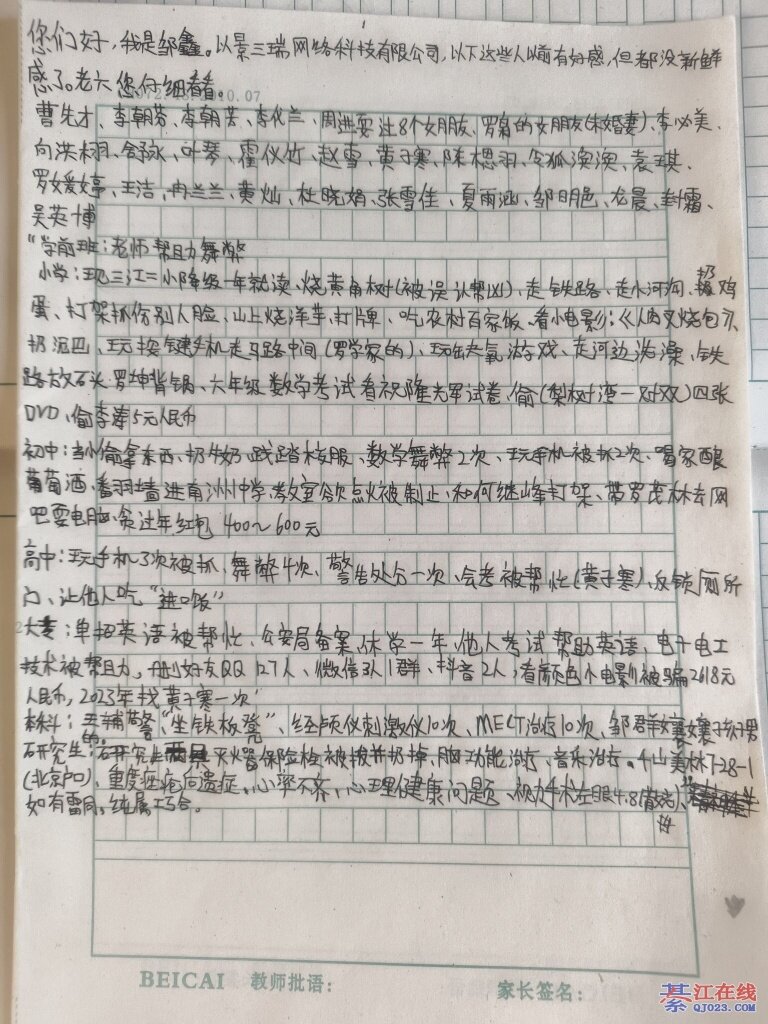 您们好，我是邹鑫。以景三瑞网络科技有限公司，以下这些人以前有好感，但都没新鲜
感了。老六您仔细看看。
曹先才、李朝芬、李朝芳、李代兰、周进耍过8个女朋友、罗角的女朋友(未婚妻)、李必美、
向洪栩、舒咏、叶琴、霍仪竹、赵雪、黄子寒、陈想羽、令狐澳澳、袁琪、
罗媛婷、王洁、冉兰兰、黄灿、杜晓娟、张雪佳、夏雨涵、邹明色、龙晨、封霜、
吴英博
"学前班：老师帮助舞弊
小学：玩三江二小降级一年就读、烧黄角树(被误认帮凶)、走铁路、走小河沟、扔鸡
蛋、打架抓伤别人脸、山上烧洋芋、打牌、吃农村百家饭、看小电影：《人肉叉烧包》、
扔泥巴、玩按键手机走马路中间(罗学家的)、玩缺氧游戏、走河边洗澡、铁
路放石头罗坤背锅、六年级数学考试看祝隆光军试卷、偷(梨树湾一对双)四张
DVD、偷李涛5元人民币
初中：当小偷拿东西、扔牛奶、践踏校服、数学舞弊2次、玩手机被抓2次、喝家酿
葡萄酒、翻羽墙进南州中学、教室欲点火被制止、和何继峰打架、带罗茂林去网
吧耍电脑、贪过年红包 400～600元
高中：玩手机3次被抓、舞弊4次、警告处分一次、会考被帮忙(黄子寒)、反锁厕所
门、让他人吃"进口饭"
大专：单招英语被帮忙、公安局备案、休学一年、他人考试帮助英语、电子电工
技术被帮助、删好友QQ 127人、微信3人1群、抖音2人；看颜色小电影被骗2618元
人民币，2023年找黄子寒一次'
本科：辅警的"坐铁板凳"、经颅仪刺激仪10次、MECT治疗10次、邹群嬢嬢子孩子男
研究生：灭火器保险栓被拔并扔掉、脑功能治疗、音乐治疗。千山美林7-28-1
(北京户口)、重度痤疮后遗症、心率不齐、心理健康问题、视力手术左眼4.8(散光)、
如有雷同，纯属巧合。
BEICAI 教师批语： 家长签名：
綦江在线
QJ023.COM